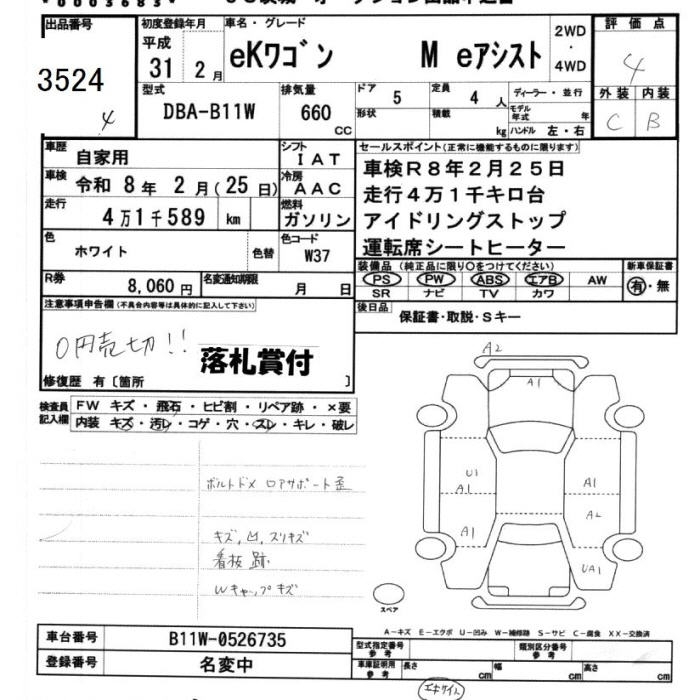 出品番号
3524
4
初度登録年月
平成
31 2月
車名・グレード
eKワゴン M eアシスト
2WD
・
4WD
評価点
4
外装 内装
C B
型式
DBA-B11W
排気量
660
CC
ドア
5
形状
定員
4 人
積載
kg
ディーラー・並行
モデル
年式 年
ハンドル 左・右
車歴
自家用
車検
令和 8年 2月(25日)
走行
4万1千589 km
色
ホワイト
色替
シフト
IAT
冷房
AAC
燃料
ガソリン
色コード
W37
R券
8,060円
名変通知期限
月 日
セールスポイント(正常に機能するものに限ります)
車検R8年2月25日
走行4万1千キロ台
アイドリングストップ
運転席シートヒーター
装備品(純正品に限り○をつけてください)
PS PW ABS エアB AW
SR ナビ TV カワ
新車保証書
有・無
後日品
保証書・取説・Sキー
注意事項申告欄(不具合内容等は具体的に記入して下さい)
0円売切!!
落札賞付
修復歴 有〔箇所 〕
検査員
記入欄
FW キズ・飛石・ヒビ割・リペア跡・×要
内装 キズ・汚レ・コゲ・穴・スレ・キレ・破レ
ボルトドメ ロアサポート歪
キズ,凹,スリキズ
看板跡
Wキャップキズ
A2
A1
U1
A1
A1
A1
A2
UA1
スペア
A-キズ E-エクボ U-凹み W-補修跡 S-サビ C-腐食 XX-交換済
車台番号
B11W-0526735
登録番号
名変中
型式指定番号
参考
類別区分番号
参考
車庫証明用
参考
長さ cm
幅 cm
高さ cm